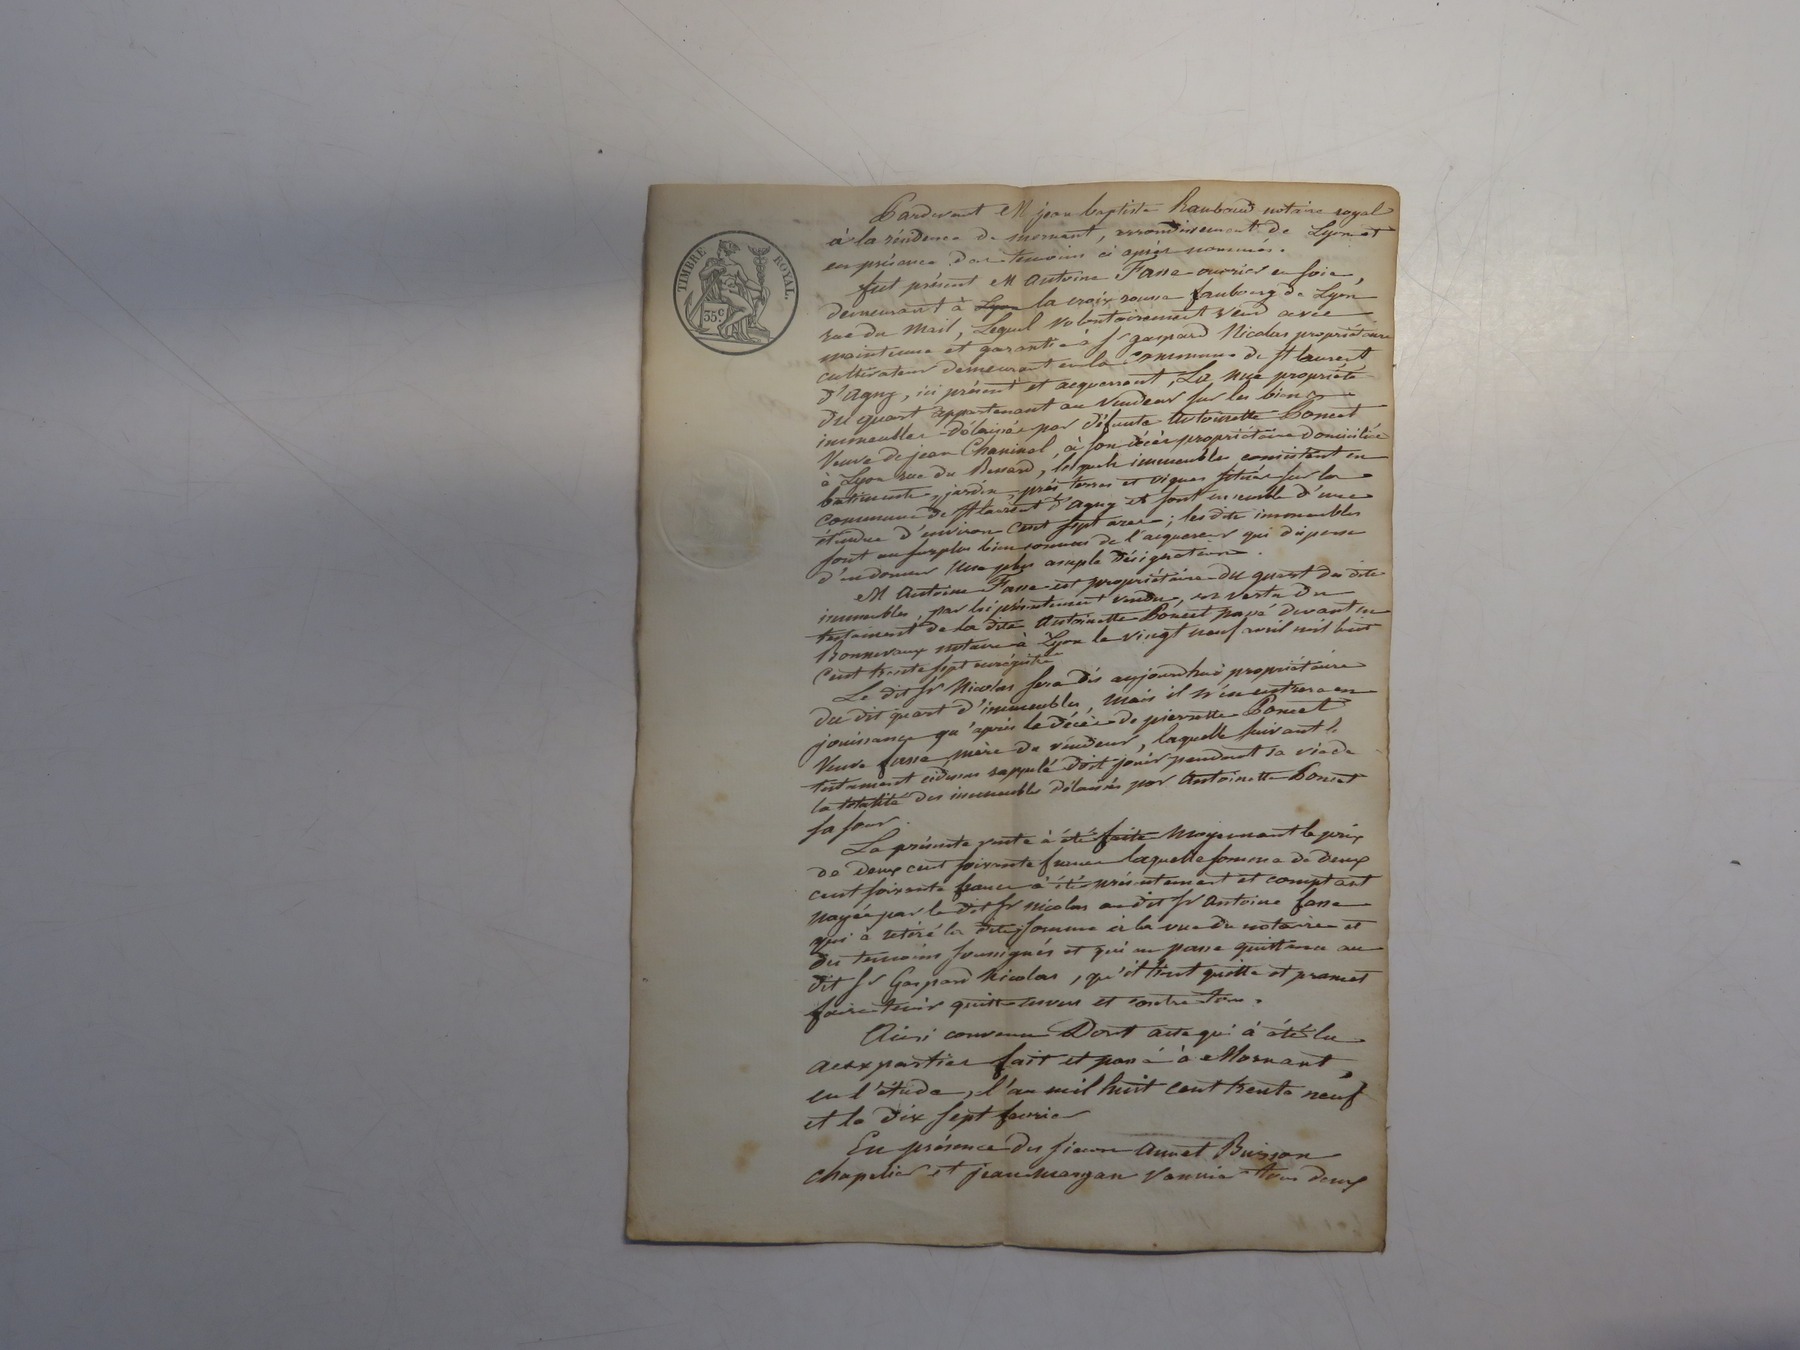 TIMBRE ROYAL.
35 c.
Pardevant M jean baptiste notaire royal
à la résidence de mornant, arrondissement de Lyon et
en présence des temoins ci après nommés.
fut présent M Antoine Fasse ouvrier en soie,
demeurant à Lyon la croix rousse faubourg de Lyon
rue du Mail, Lequel volontairement vend avec
maintenue et garantie à Sr gaspard Nicolas propriétaire
cultivateur demeurant en la commune de St laurent
d'Agny, ici présent et acquereur, La nue propriété
du quart appartenant au vendeur sur les biens
immeubles délaissés par défunte Antoinette Poncet
Veuve de jean Chavinal, à son décès propriétaire domiciliée
à Lyon rue du , lesquels immeubles consistent en
batiments, jardin, prés terres et vignes situés sur la
commune de St laurent d'agny et sont ensemble d'une
étendue d'environ cent sept ares; les dits immeubles
sont au surplus bien connus de l'acquereur qui dispense
d'en donner une plus ample désignation.
M Antoine Fasse est propriétaire du quart des dits
immeubles, par lui présentement vendu, en vertu du
testament de la dite Antoinette Poncet passé devant me
Bonnevaux notaire à Lyon le vingt neuf avril mil huit
cent trente sept enregistré
Le dit Sr Nicolas sera dès aujourdhui propriétaire
du dit quart d'immeubles, mais il n'en entrera en
jouissance qu'après le décès de pierrette Poncet
Veuve fasse, mère du vendeur, laquelle suivant le
testament cidessus rappelé doit jouir pendant sa vie de
la totalité des immeubles délaissés par Antoinette Poncet
sa sœur.
La présente vente à été faite Moyennant le prix
de deux cent soixante francs laquelle somme de deux
cent soixante francs à été présentement et comptant
payée par le dit Sr Nicolas au dit Sr Antoine fasse
qui à retiré la dite somme à la vue du notaire et
des temoins soussignés et qui en passe quittance au
dit Sr Gaspard Nicolas, qu'il tient quitte et promet
faire tenir quitte envers et contre tous.
Ainsi convenu Dont acte qui à été lu
aux parties fait et passé à Mornant,
en l'étude, l'an mil huit cent trente neuf
et le dix sept fevrier
En présence des sieurs Annet Buisson
chapelier et jean margan vannier tous deux